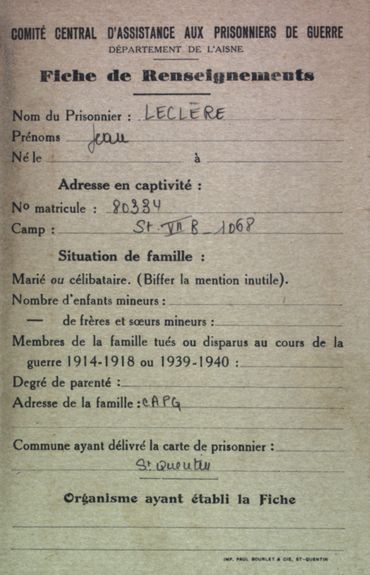 COMITÉ CENTRAL D'ASSISTANCE AUX PRISONNIERS DE GUERRE
DÉPARTEMENT DE L'AISNE
Fiche de Renseignements
Nom du Prisonnier : LECLÈRE
Prénoms Jean
Né le à
Adresse en captivité :
No matricule : 80334
Camp : St. VII B _ 1068
Situation de famille :
Marié ou célibataire. (Biffer la mention inutile).
Nombre d'enfants mineurs :
— de frères et sœurs mineurs :
Membres de la famille tués ou disparus au cours de la
guerre 1914-1918 ou 1939-1940 :
Degré de parenté :
Adresse de la famille : CAPG
Commune ayant délivré la carte de prisonnier :
St Quentin
Organisme ayant établi la Fiche
IMP. PAUL BOURLET & CIE, ST-QUENTIN